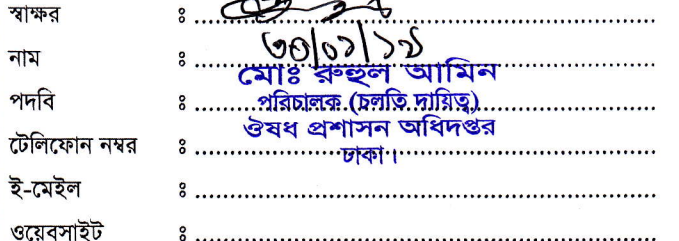 স্বাক্ষর ঃ
৩০/০১/১৯
নাম ঃ
মোঃ রুহুল আমিন
পদবি ঃ পরিচালক (চলতি দায়িত্ব)
ঔষধ প্রশাসন অধিদপ্তর
টেলিফোন নম্বর ঃ ঢাকা।
ই-মেইল ঃ
ওয়েবসাইট ঃ